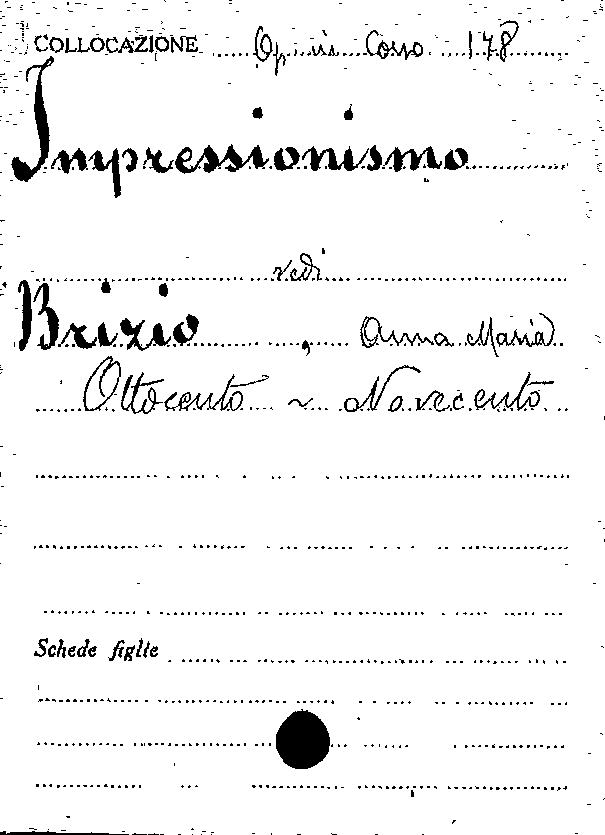 COLLOCAZIONE Op. in Corso 178
Impressionismo
vedi
Brizio, Anna Maria
Ottocento ~ Novecento
Schede figlie